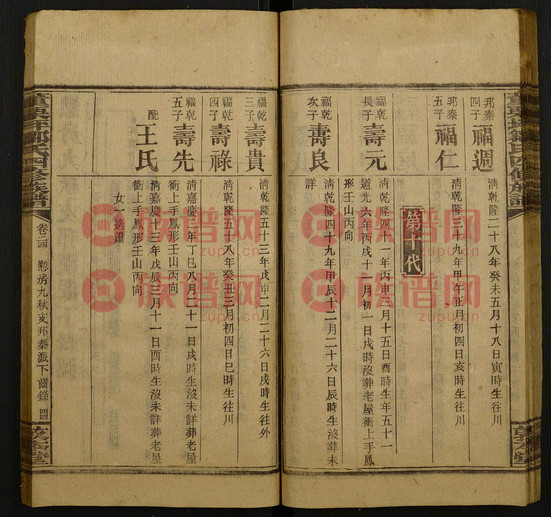 邦泰四子 福週 清乾隆二十八年癸未五月十八日寅時生往川
邦泰五子 福仁 清乾隆三十九年甲午正月初四日亥時生往川
第十代
福乾長子 壽元 清乾隆四十一年丙申十一月十五日酉時生年五十一
道光六年丙戌十一月初一日戌時沒葬老屋衝上手鳳
形壬山丙向
福乾次子 壽良 清乾隆四十九年甲辰十二月二十六日辰時生沒葬未
詳
福乾三子 壽貴 清乾隆五十三年戊申二月二十六日戌時生往外
福乾四子 壽祿 清乾隆五十八年癸丑三月初四日巳時生往川
福乾五子 壽先 清嘉慶二年丁巳八月二十一日戌時生沒未詳葬老屋
衝上手鳳形壬山丙向
配 王氏 清嘉慶十三年戊辰三月十一日酉時生沒未詳葬老屋
衝上手鳳形壬山丙向
女一適蕭
氏四修族譜
卷三四
九秋支邦泰派下齒錄
族谱网
zupu.cn
族谱网
zupu.cn